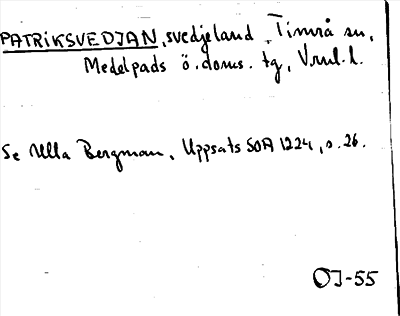 PATRIKSVEDJAN, svedjeland, Timrå sn,
Medelpads ö. doms. tg, Vrml. l.
Se Ulla Bergman, Uppsats SOA 1224, s. 26.
OJ-55